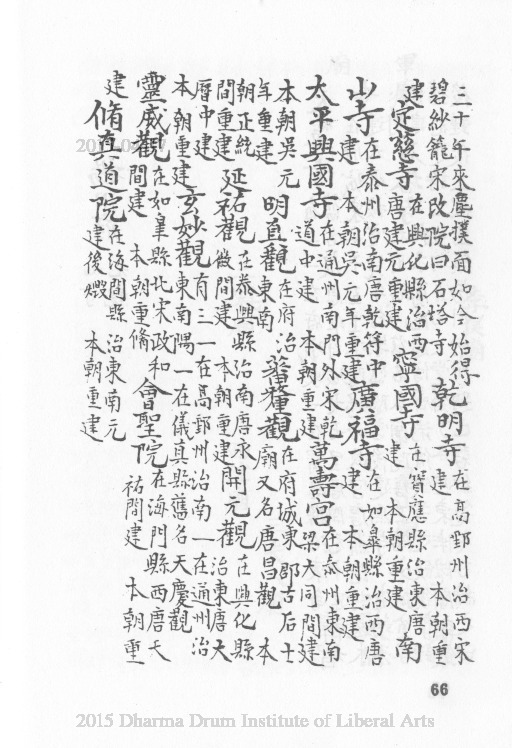 三十年來塵撲面如今始得碧紗籠宋改院曰石塔寺乾明寺在高郵州治西宋建 本朝重
建定慧寺在興化縣治西唐建元重建寧國寺在寶應縣治東唐建 本朝重建南
山寺在泰州治南唐乾符中建 本朝吳元年重建廣福寺在如皋縣治西唐建 本朝重建
太平興國寺在通州南門外宋乾道中建 本朝重建萬壽宮在泰州東南梁大同間建
本朝吳元年重建明真觀在府治東南蕃釐觀在府城東郡古后土廟又名唐昌觀 本
朝正統間重建延祐觀在泰興縣治南唐永徽間建 本朝重建開元觀在興化縣治東唐天
曆中建本朝重建玄妙觀有三一在高郵州治南一在通州治東南隅一在儀真縣舊名天慶觀
靈威觀在如皋縣北宋政和間建 本朝重脩會聖院在海門縣西唐天祐間建 本朝重
建脩真道院在海門縣治東南元建後燬 本朝重建
66
2015 Dharma Drum Institute of Liberal Arts